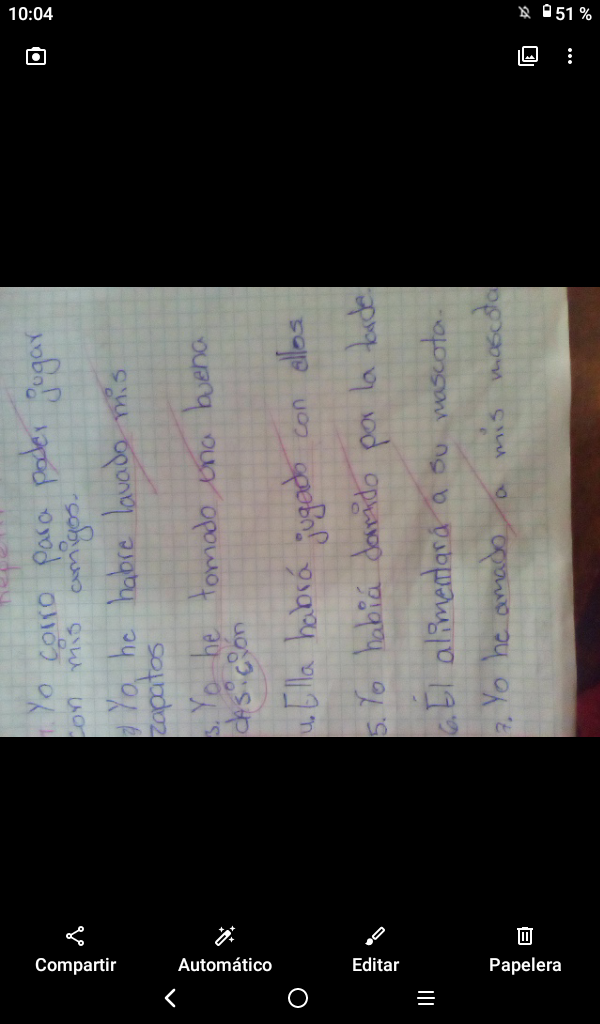 10:04
51 %
Repetir
1. Yo corro para poder jugar
con mis amigos.
2) Yo he habre lavado mis
zapatos
3. Yo he tomado una buena
4. Ella habrá jugado con ellos
5. Yo habiá dormido por la tarde.
6. Él alimentará a su mascota.
7. Yo he amado a mis mascota
Compartir
Automático
Editar
Papelera